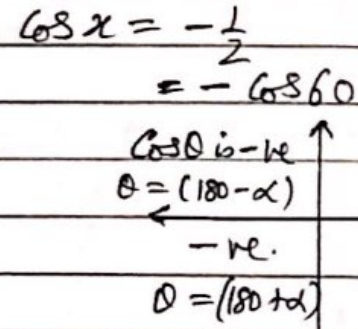 Cos x = - 1/2
= - Cos 60
Cosθ is -ve
θ = (180 - α)
-ve.
θ = (180 + α)